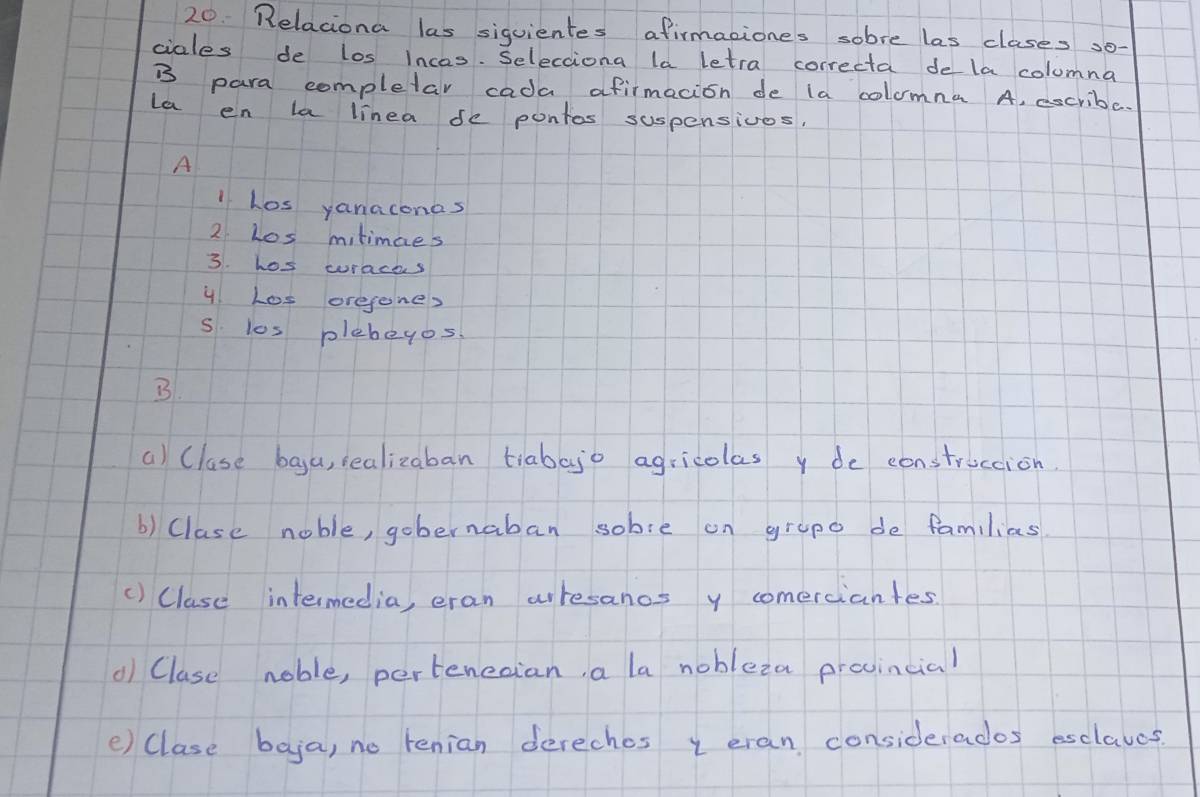 20.- Relaciona las siguientes afirmaciones sobre las clases so-
ciales de los Incas. Selecciona la letra correcta de la columna
B para completar cada afirmación de la columna A, escribe.
la en la linea de pontos suspensivos.
A
1. Los yanaconas
2. Los mitimaes
3. Los curacas
4. Los orejones
5. los plebeyos.
B.
a) Clase baja, realizaban trabajo agricolas y de construcción.
b) Clase noble, gobernaban sobre un grupo de familias.
c) Clase intermedia, eran artesanos y comerciantes.
d) Clase noble, pertenecian a la nobleza provincial
e) Clase baja, no tenian derechos y eran considerados esclavos.